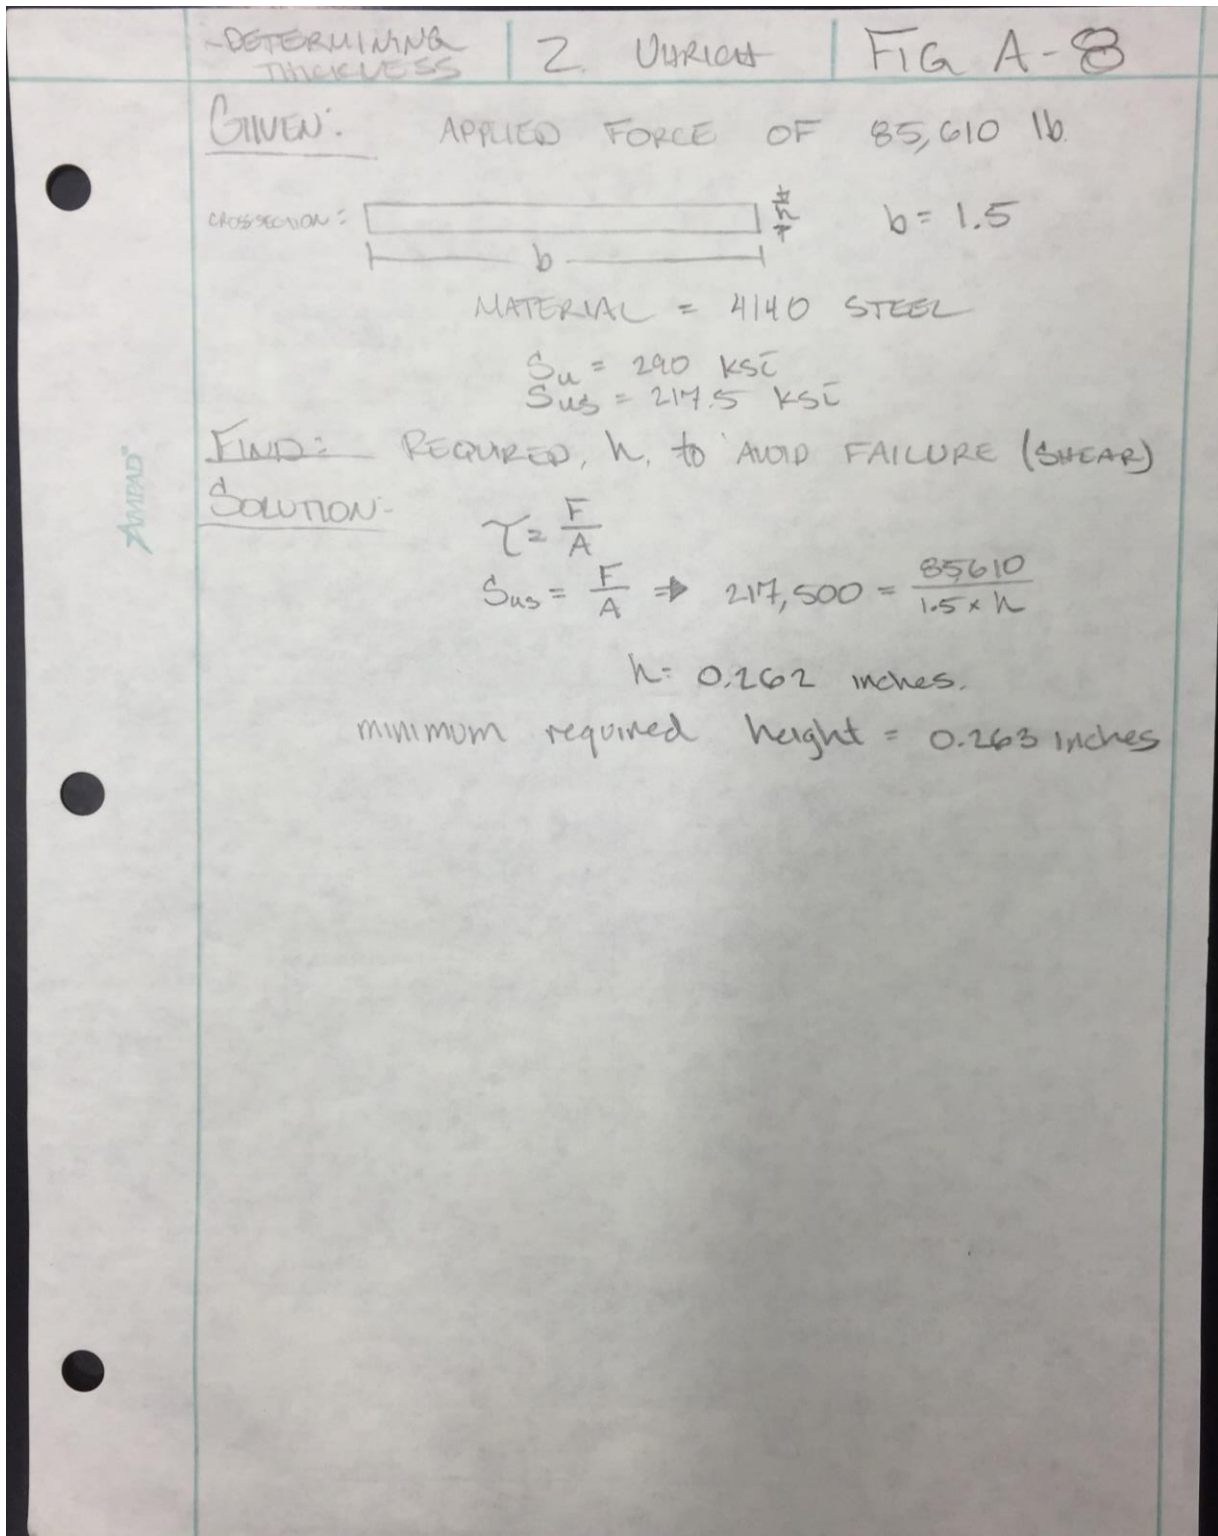 DETERMINING THICKNESS Z. UHRICH FIG A-8
GIVEN: APPLIED FORCE OF 85,610 lb.
CROSSSECTION = h b = 1.5
b
MATERIAL = 4140 STEEL
Su = 290 ksi
Sus = 217.5 ksi
FIND: REQUIRED, h, to AVOID FAILURE (SHEAR)
AMPAD®
SOLUTION-
τ = F/A
Sus = F/A ⇒ 217,500 = 85610/1.5 × h
h = 0.262 inches.
minimum required height = 0.263 inches